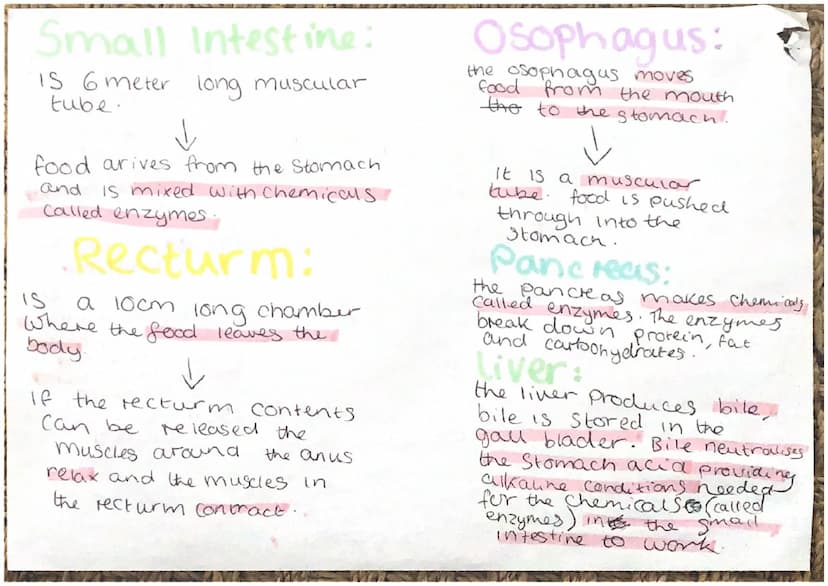 Small Intestine:
Is 6 meter long muscular
tube.
food arives from the stomach
and is mixed with chemicals
called enzymes.
Recturm:
Is a 10cm long chamber
where the food leaves the
body.
If the recturm contents
can be released the
muscles around the anus
relax and the muscles in
the recturm contract.
Osophagus:
the osophagus moves
food from the mouth
tho to the stomach.
It is a muscular
tube. food is pushed
through into the
stomach.
Pancreas:
the pancreas makes chemicals
called enzymes. The enzymes
break down protein, fat
and carbohydrates.
Liver:
the liver produces bile,
bile is stored in the
gall blader. Bile neutralises
the stomach acid providing
alkaline conditions needed
for the chemicals (called
enzymes) in the small
intestine to work.